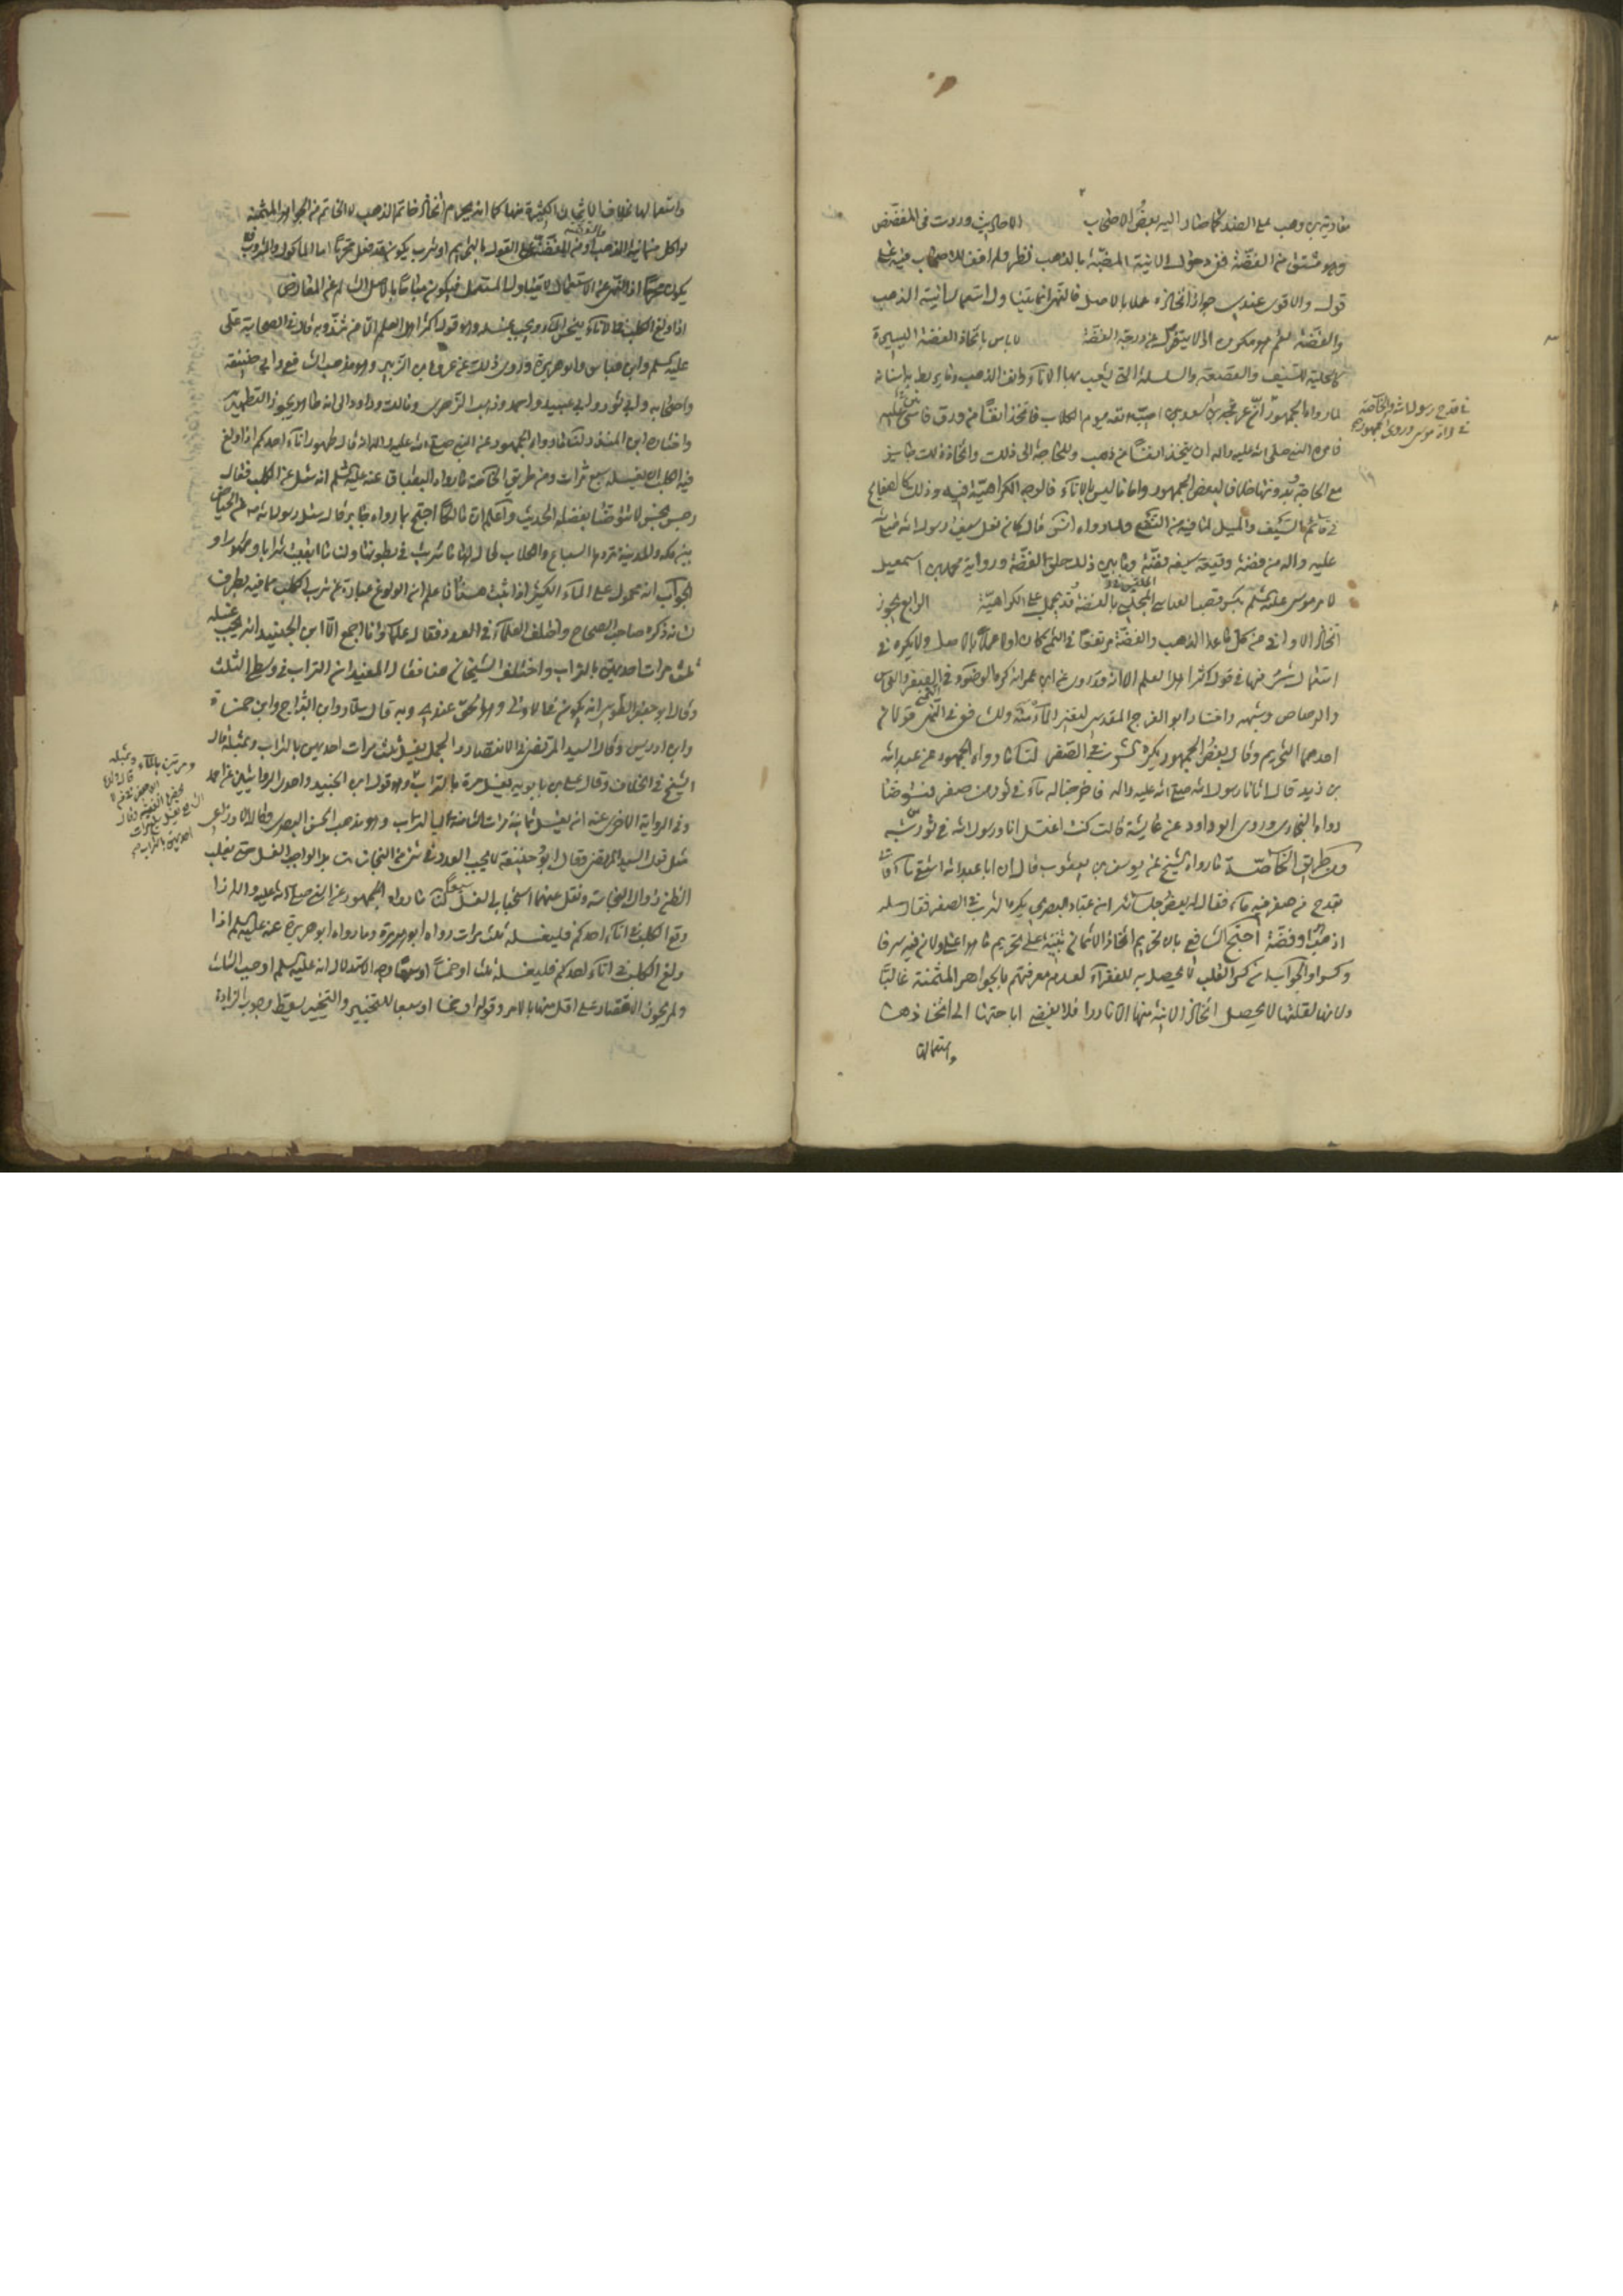 معاوية بن وهب على الضد كما صار اليه بعض الاصحاب الاحاديث وردت فى المفضض
وهو مشتق من الفضة ففى دخول الانية المضببة بالذهب نظر ولم اقف للاصحاب فيه على
قول والاقوى عندى جواز اتخاذه عملا بالاصل فالنهى انما يتناول استعمال انية الذهب
والفضة نعم هو مكروه اذ لا ينزل عن درجة الفضة لا باس باتخاذ الفضة اليسيرة
كالحلية للسيف والقصعة والسلسلة التى يشعب بها الاناء وانف الذهب وما يربط به اسنانه
لما رواه الجمهور فى قدح رسول الله والخاصة
فى مرآة موسى وروى الجمهور
ان عرفجة بن اسعد اصيب انفه يوم الكلاب فاتخذ انفا من ورق فانتن عليه
فامره النبى صلى الله عليه واله ان يتخذ انفا من ذهب وللحاجة الى ذلك واتخاذ ذلك جايز
مع الحاجة وبدونها خلافا لبعض الجمهور واما ما ليس باناء فالوجه الكراهية فيه وذلك كالصفايح
فى قائم السيف والميل لما فيه من النفع ولما رواه انس قال كان نعل سيف رسول الله صلى الله
عليه واله من فضة وقبيعة سيفه فضة وما بين ذلك حلق الفضة ورواية محمد بن اسمعيل
لامر موسى عليه السلم بكسر قضيب العباس الملبس بالفضة قد يحمل على الكراهية الرابع يجوز
اتخاذ الاوانى من كل ما عدا الذهب والفضة مرتفعا فى الثمن كان او لا عملا بالاصل ولا يكره
استعمال شىء منها فى قول اكثر اهل العلم الا انه قد روى عن ابن عمر انه كره الوضوء فى الصفر والنحاس
والرصاص وشبهه واختار ابو الفرج المقدسى لتغير الماء منه وللشافعى فى الثمين قولان
احدهما التحريم وقال بعض الجمهور يكره الشرب فى الصفر لنا ما رواه الجمهور عن عبد الله
بن زيد قال اتانا رسول الله صلى الله عليه واله فاخرجنا له ماء فى تور من صفر فتوضا
رواه البخارى وروى ابو داود عن عايشة قالت كنت اغتسل انا ورسول الله فى تور من شبه
ومن طريق الخاصة ما رواه الشيخ عن يوسف بن يعقوب قال ان ابا عبد الله استقى ماء فاتى
بقدح من صفر فيه ماء فقال له بعض جلسائه ان عباد البصرى يكره الشرب فى الصفر فقال سله
اذهب او فضة احتج الشافعى بان تحريم اتخاذ الاثمان تنبيه على تحريم ما هو اعلى ولان فيه سرفا
وكسرا والجواب ان كسر القلب لا يحصل به للفقراء لعدم معرفتهم بالجواهر المثمنة غالبا
ولانها لقلتها لا يحصل اتخاذ الانية منها الا نادرا فلا يفضى اباحتها الى اتخاذها
واستعمالها
واستعمالها بخلاف الاثمان الكثيرة منها كما انه يحرم اتخاذ خاتم الذهب لا الخاتم من الجواهر المثمنة
لو اكل من انية الذهب او من المفضضة على القول بالتحريم او شرب يكون قد فعل محرما اما الماكول والمشروب فلا
يكون محرما اذ النهى عن الاستعمال لا يتناول المستعمل فيكون مباحا بالاصل السالم عن المعارض
اذا ولغ الكلب فى الاناء ينجس الماء ووجب غسله وهو قول اكثر اهل العلم الا من شذ وبه قال فى الصحابة على
عليه السلم وابن عباس وابو هريرة وروى ذلك عن عروة بن الزبير وهو مذهب الشافعى وابى حنيفة
واصحابه وابى ثور وابى عبيد واحمد وذهب الزهرى ومالك وداود الى انه طاهر يجوز التطهير به
واختاره ابن المنذر لنا ما رواه الجمهور عن النبى صلى الله عليه واله انه قال طهور اناء احدكم اذا ولغ
فيه الكلب ان يغسله سبع مرات ومن طريق الخاصة ما رواه البقباق عنه عليه السلم انه سئل عن الكلب فقال
رجس نجس لا تتوضا بفضله الحديث واعلم ان مالكا احتج بما رواه جابر قال سئل رسول الله صلى الله عن الحياض
بين مكة والمدينة تردها السباع والكلاب قال لها ما شربت فى بطونها ولنا ما ابقت شرابا وطهورا و
الجواب انه محمول على الماء الكثير اذا ثبت هذا فاعلم ان الولوغ عبارة عن شرب الكلب مما فيه بطرف
لسانه ذكره صاحب الصحاح واختلف العلماء فى العدد فقال علماؤنا اجمع الا ابن الجنيد انه يجب غسله
ثلث مرات احديهن بالتراب واختلف الشيخان هنا فقال المفيد ان التراب فى وسط الثلث
وقال ابو جعفر الطوسى انه يكون فى الاولى وهو الحق عندى وبه قال سلار وابن البراج وابن حمزة
وابن ادريس وقال السيد المرتضى فى الانتصار والجمل يغسل ثلث مرات احديهن بالتراب وبمثله قال
الشيخ فى الخلاف وقال على بن بابويه يغسل مرة بالتراب ومرتين بالماء وبمثله
قال ابنه ابو جعفر
يغسل سبع مرات
احديهن بالتراب
وهو قول ابن الجنيد واحدى الروايتين عن احمد
وفى الرواية الاخرى عنه انه يغسل ثمانية مرات الثامنة بالتراب وهو مذهب الحسن البصرى وقال الاوزاعى
مثل قول السيد المرتضى وقال ابو حنيفة لا يجب العدد فى شىء من النجاسات بل الواجب الغسل حتى يغلب
الظن زوال النجاسة ونقل عنهما استحباب الغسل سبعا لنا ما رواه الجمهور عن النبى صلى الله عليه واله اذا
وقع الكلب فى اناء احدكم فليغسله ثلث مرات رواه ابو هريرة وما رواه ابو هريرة عنه عليه السلم اذا
ولغ الكلب فى اناء احدكم فليغسله ثلثا او خمسا او سبعا وجه الاستدلال انه عليه السلم اوجب الثلث
ولم يجوز الاقتصار على اقل منها بالامر وقوله او خمسا او سبعا للتخيير والتخيير يسقط وجوب الزيادة